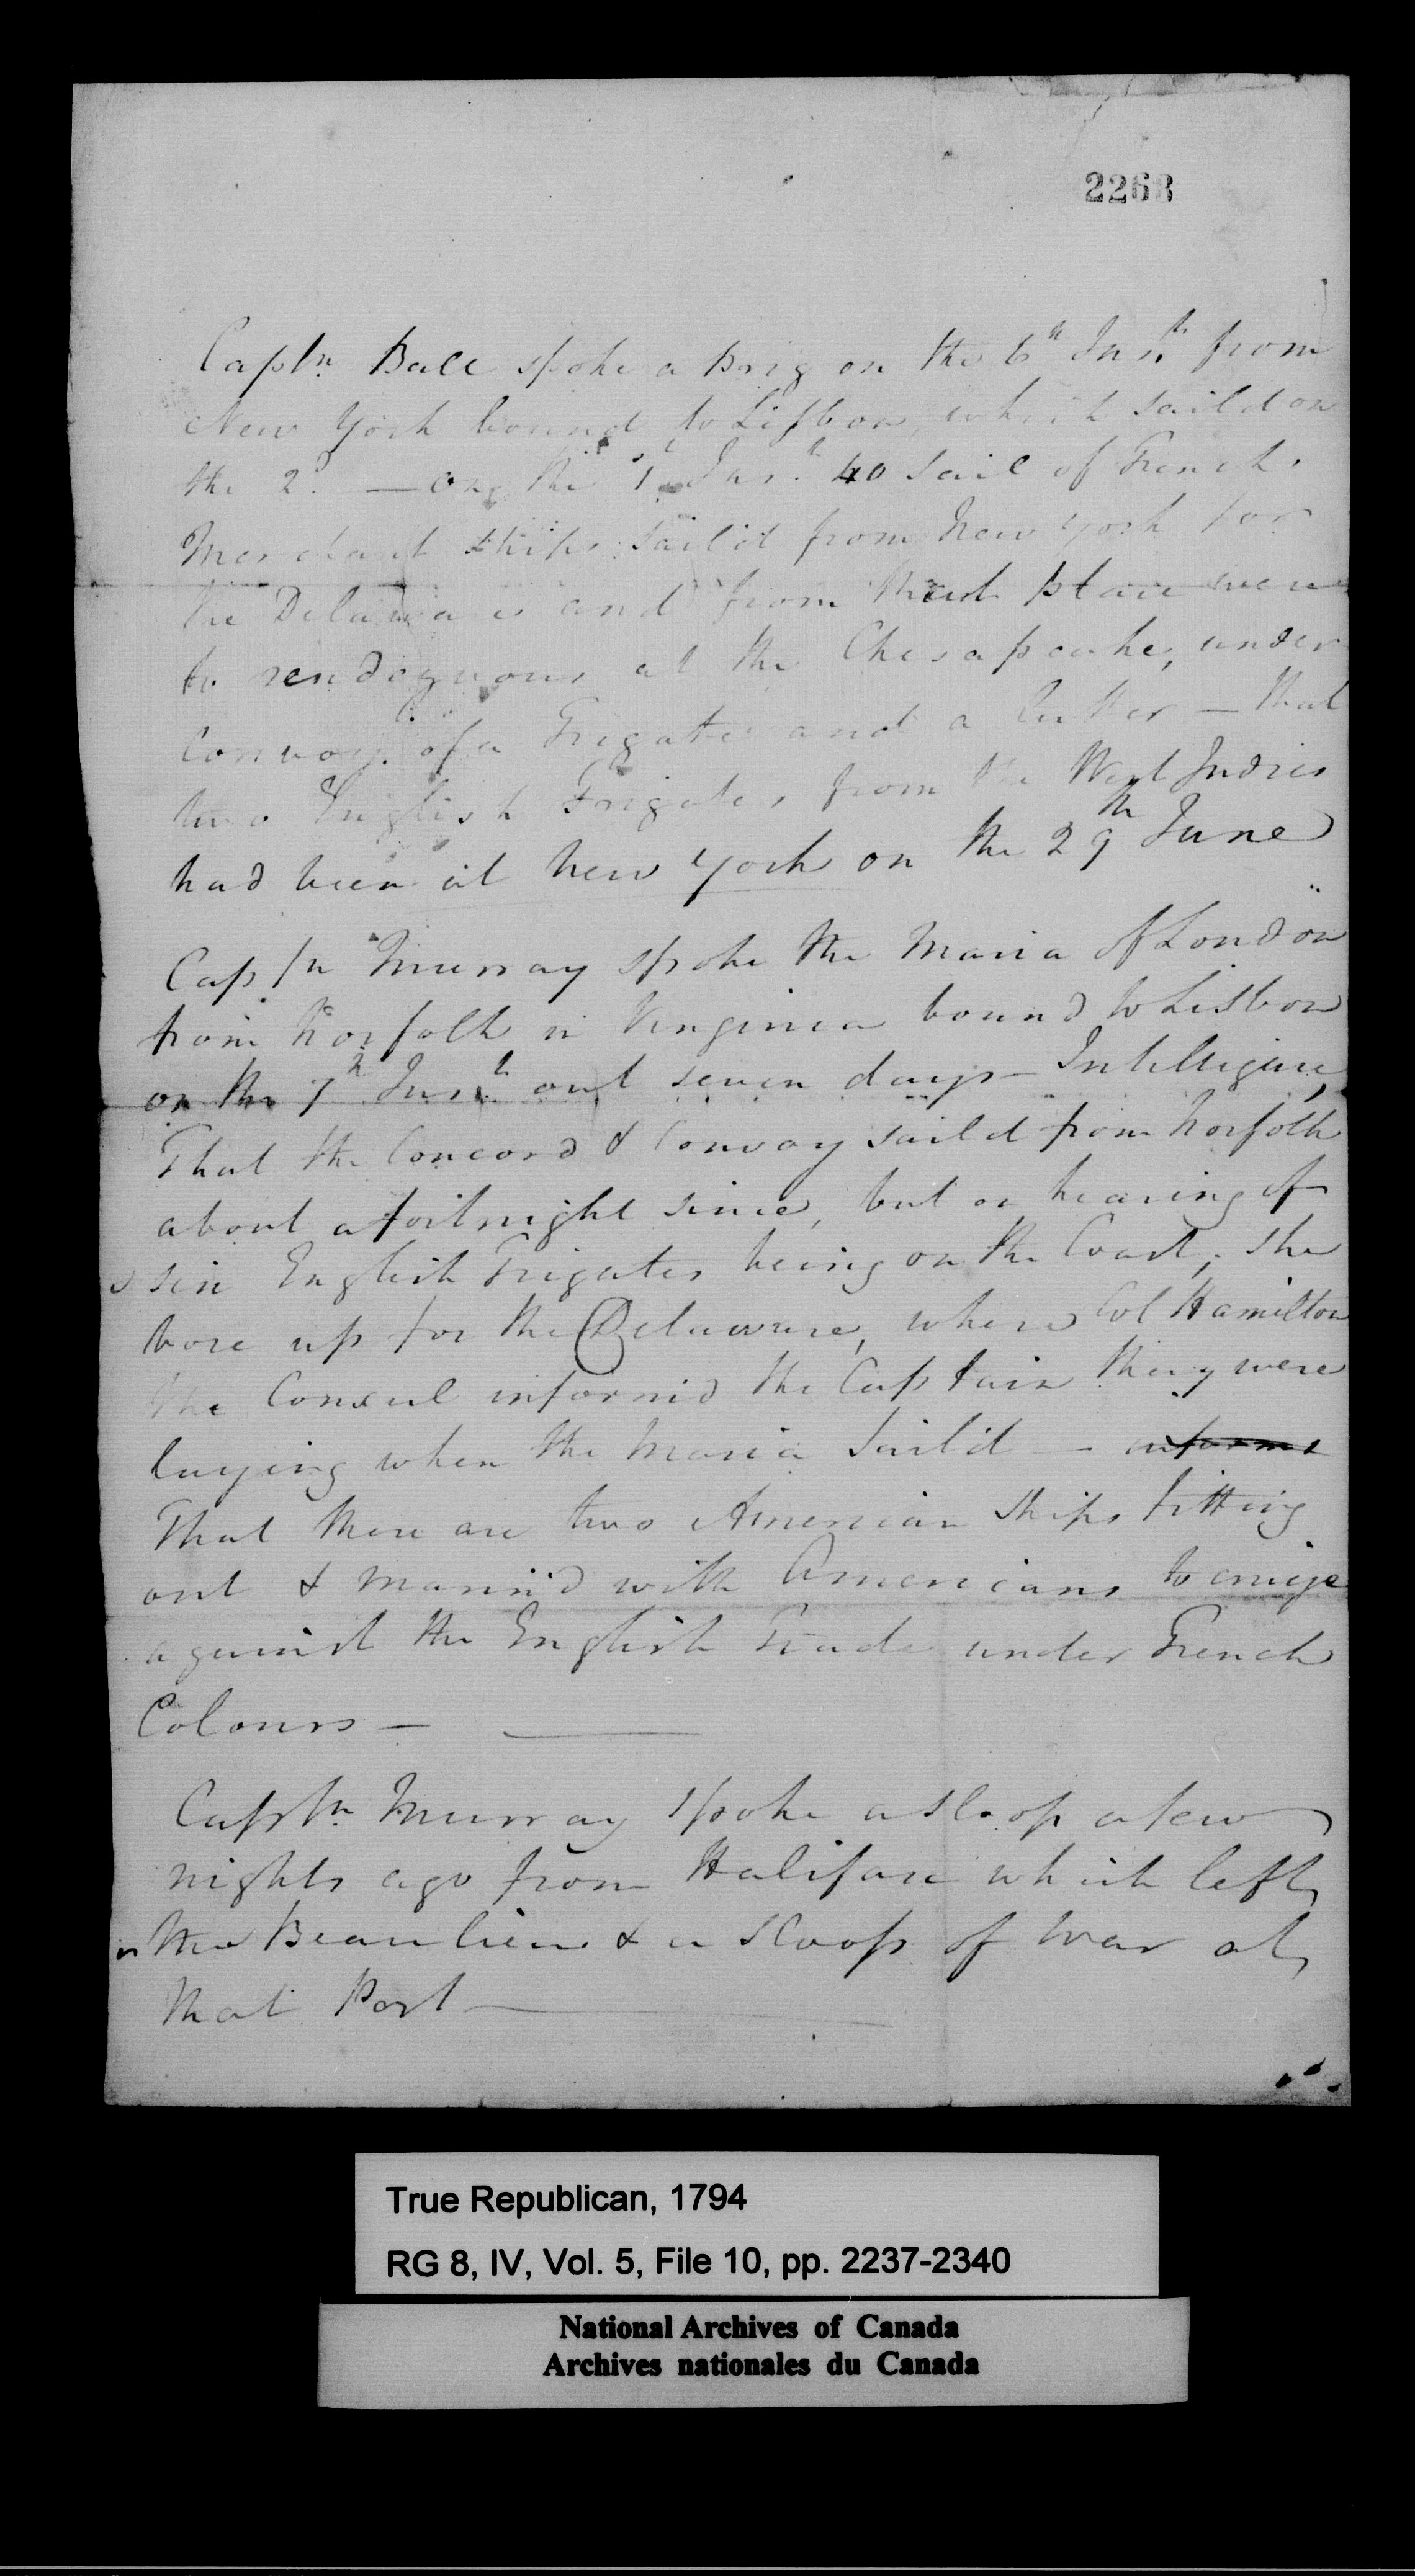 2263
Captn. Ball spoke a Brig on the 6th Inst. from
New York bound to Lisbon, which saild on
the 2d. — on the 1st Inst. 40 Sail of French
Merchant ships sail'd from New York for
the Delaware and from that place were
to rendezvous at the Chesapeake, under
Convoy of a Frigate and a Cutter — that
two English Frigates from the West Indies
had been at New York on the 29th June
Captn Murray spoke the Maria of London
from Norfolk in Virginia bound to Lisbon
on the 7th Inst. out seven days — Intelligence
That the Concord & Convoy saild from Norfolk
about a fortnight since, but on hearing of
six English Frigates being on the Coast, she
bore up for the Delaware, where Col Hamilton
the Consul inform'd the Captain they were
laying when the Maria Sail'd — informs
That there are two American Ships fitting
out & mann'd with Americans to cruize
against the English Trade under French
Colours —
Captn. Murray spoke a sloop a few
nights ago from Halifax which left
the Beaulieu & a Sloop of War at
that Port
True Republican, 1794
RG 8, IV, Vol. 5, File 10, pp. 2237-2340
National Archives of Canada
Archives nationales du Canada